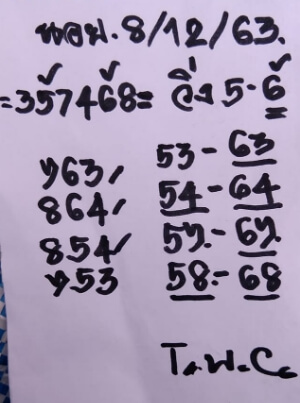 นอย. 8/12/63.
=357468= วิ่ง 5-6
763/
864/
854/
753
53-63
54-64
57-67
58-68